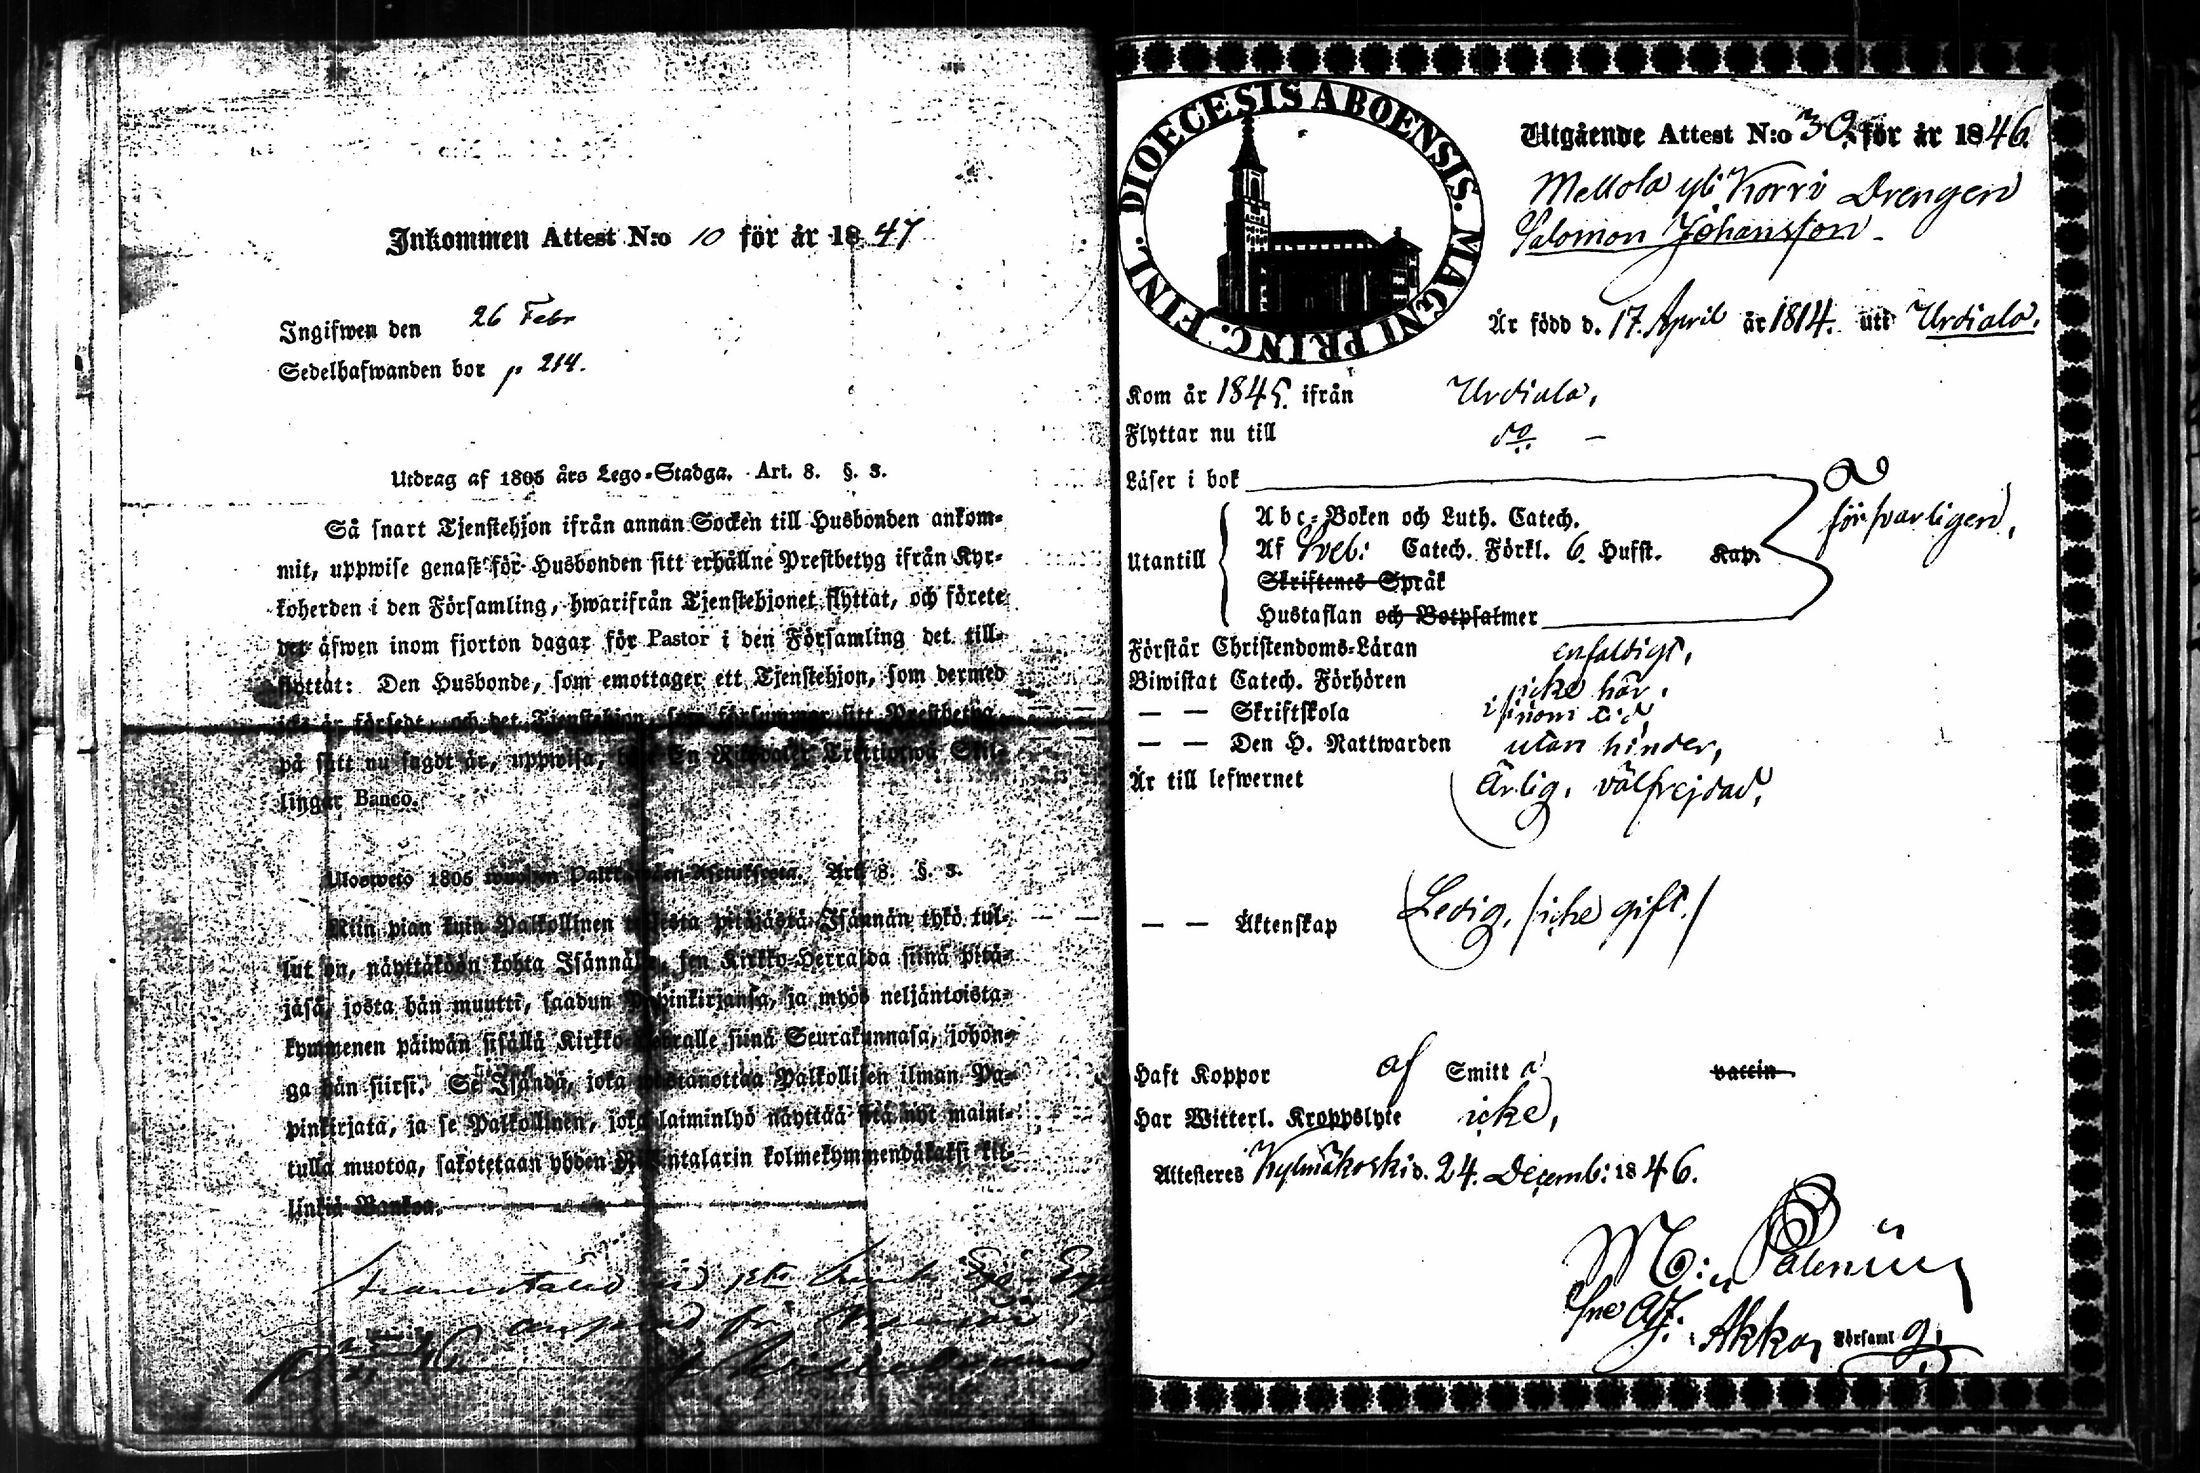 Inkommen Attest N:o 10 för år 1847
Ingifwen den 26 Febr
Sedelhafwanden bor p 214.
Utdrag af 1805 års Lego-Stadga. Art. 8. §. 3.
Så snart Tjenstehjon ifrån annan Socken till Husbonden ankom-
mit, uppwise genast för Husbonden sitt erhållne Prestbetyg ifrån Kyr-
koherden i den Församling, hwarifrån Tjenstehjonet flyttat, och förete
det äfwen inom fjorton dagar för Pastor i den Församling det till-
flyttat: Den Husbonde, som emottager ett Tjenstehjon, som dermed
icke är försedt, och det Tjenstehjon, som försummar sitt Prestbetyg
på sätt nu sagdt är, uppwisa, böte En Riksdaler Trettiotwå Skil-
lingar Banco.
Ulosweto 1805 wuoden Palkkawäen-Asetuksesta. Art. 8. §. 3.
Niin pian kuin Palkollinen toisesta pitäjästä Isännän tykö tul-
lut on, näyttäköön kohta Isännälle, sen Kirkko-Herralda siinä pitä-
jäsä, josta hän muutti, saadun Papinkirjansa, ja myös neljäntoista-
kymmenen päiwän sisällä Kirkko-Herralle siinä Seurakunnasa, johon-
ga hän siirsi. Se Isändä, joka wastanottaa Palkollisen ilman Pa-
pinkirjata, ja se Palkollinen, joka laiminlyö näyttää sitä nyt maini-
tulla muotoa, sakotetaan yhden Riksintalarin kolmekymmendäkaksi kil-
linkiä Bankoa.
DIOECESIS ABOENSIS. MAGNI PRINC. FINL.
Utgående Attest N:o 30 för år 1846.
Mellola yli Korri Drengen
Salomon Johansson
Är född d. 17. April år 1814. uti Urdiala.
Kom år 1845. ifrån Urdiala,
Flyttar nu till do. —
Läser i bok
försvarligen,
Utantill
Abc-Boken och Luth. Catech.
Af Sveb: Catech. Förkl. 6. Hufst. Kap.
Skriftenes Språk
Hustaflan och Botpsalmer
Förstår Christendoms-Läran enfaldigt,
Biwistat Catech. Förhören icke här,
— — Skriftskola i sinom tid,
— — Den H. Nattwarden utan hinder,
Är till lefwernet Ärlig, välfrejdad,
— — Äktenskap Ledig, /icke gift./
Haft Koppor af Smitt a vaccin
Har Witterl. Kroppslyte icke,
Attesteres Kylmäkoski d. 24. Decemb: 1846.
M: Palenius
Sne Adj: i Akka Församl g.